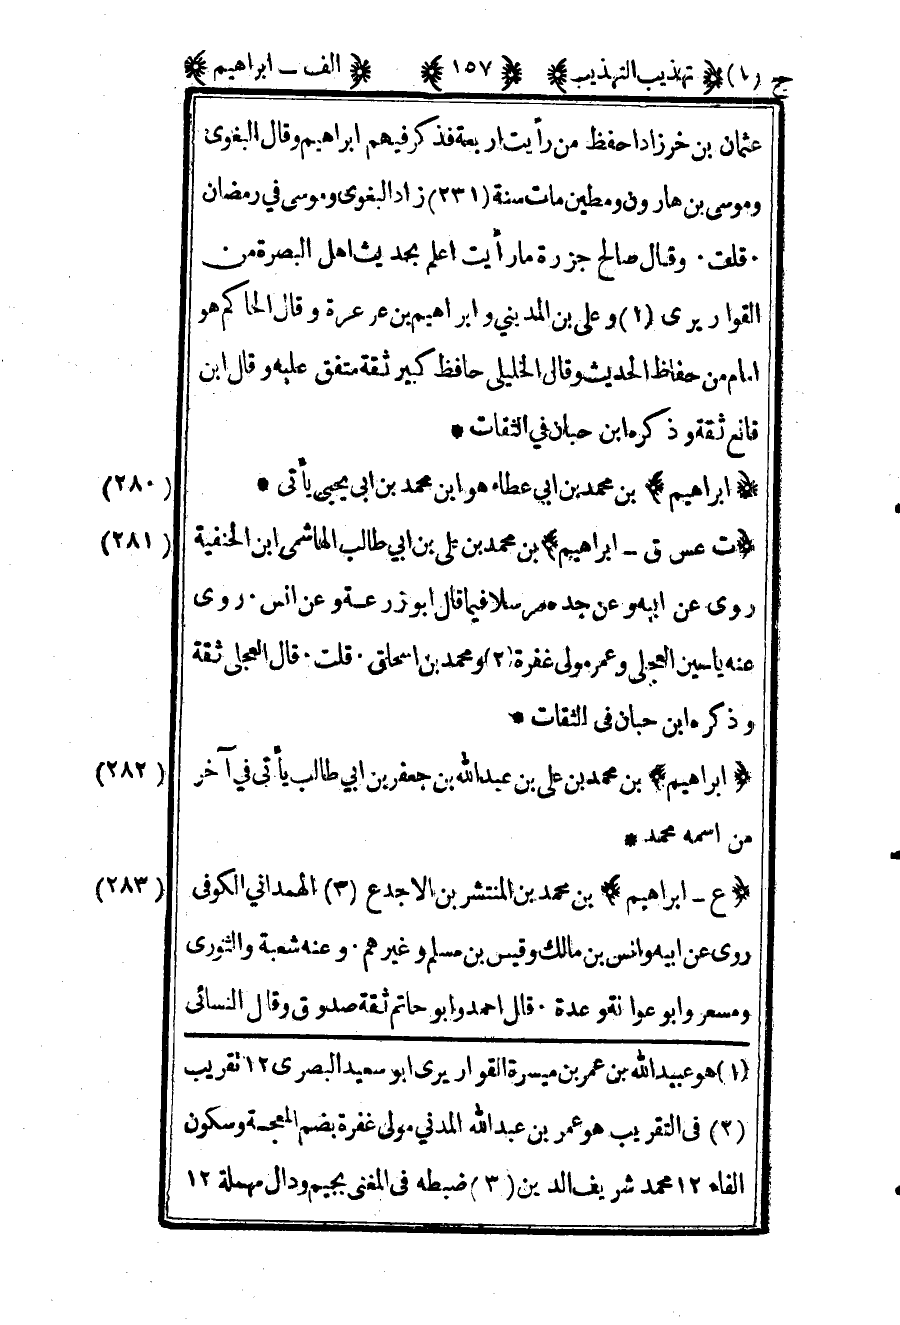 ج (١) ﴿ تهذيب التهذيب ﴾ ﴿ ١٥٧ ﴾ ﴿ الف ـ ابراهيم ﴾
عثمان بن خرزاذ احفظ من رأيت اربعة فذكر فيهم ابراهيم وقال البغوى
وموسى بن هارون ومطين مات سنة (٢٣١) زاد البغوى وموسى في رمضان
٠ قلت ٠ وقال صالح جزرة ما رأيت اعلم بحديث اهل البصرة من
القواريرى (١) وعلى بن المديني وابراهيم بن عرعرة وقال الحاكم هو
امام من حفاظ الحديث وقال الخليلى حافظ كبير ثقة متفق عليه وقال ابن
قانع ثقة وذكره ابن حبان في الثقات *
﴿ ابراهيم ﴾ بن محمد بن ابي عطاء هو ابن محمد بن ابى يحيى يأتى * (٢٨٠)
﴿ ت عس ق ـ ابراهيم ﴾ بن محمد بن على بن ابي طالب الهاشمى ابن الحنفية (٢٨١)
روى عن ابيه وعن جده مرسلا فيما قال ابو زرعة وعن انس ٠ روى
عنه ياسين العجلى وعمر مولى غفرة (٢) ومحمد بن اسحاق ٠ قلت ٠ قال العجلى ثقة
وذكره ابن حبان فى الثقات *
﴿ ابراهيم ﴾ بن محمد بن على بن عبدالله بن جعفر بن ابي طالب يأتى في آخر (٢٨٢)
من اسمه محمد *
﴿ ع ـ ابراهيم ﴾ بن محمد بن المنتشر بن الاجدع (٣) الهمداني الكوفى (٢٨٣)
روى عن ابيه وانس بن مالك وقيس بن مسلم وغيرهم ٠ وعنه شعبة والثورى
ومسعر وابو عوانة وعدة ٠ قال احمد وابو حاتم ثقة صدوق وقال النسائى
(١) هو عبيدالله بن عمر بن ميسرة القواريرى ابو سعيد البصرى ١٢ تقريب
(٢) فى التقريب هو عمر بن عبدالله المدني مولى غفرة بضم المعجمة وسكون
الفاء ١٢ محمد شريف الدين (٣) ضبطه فى المغنى بجيم ودال مهملة ١٢